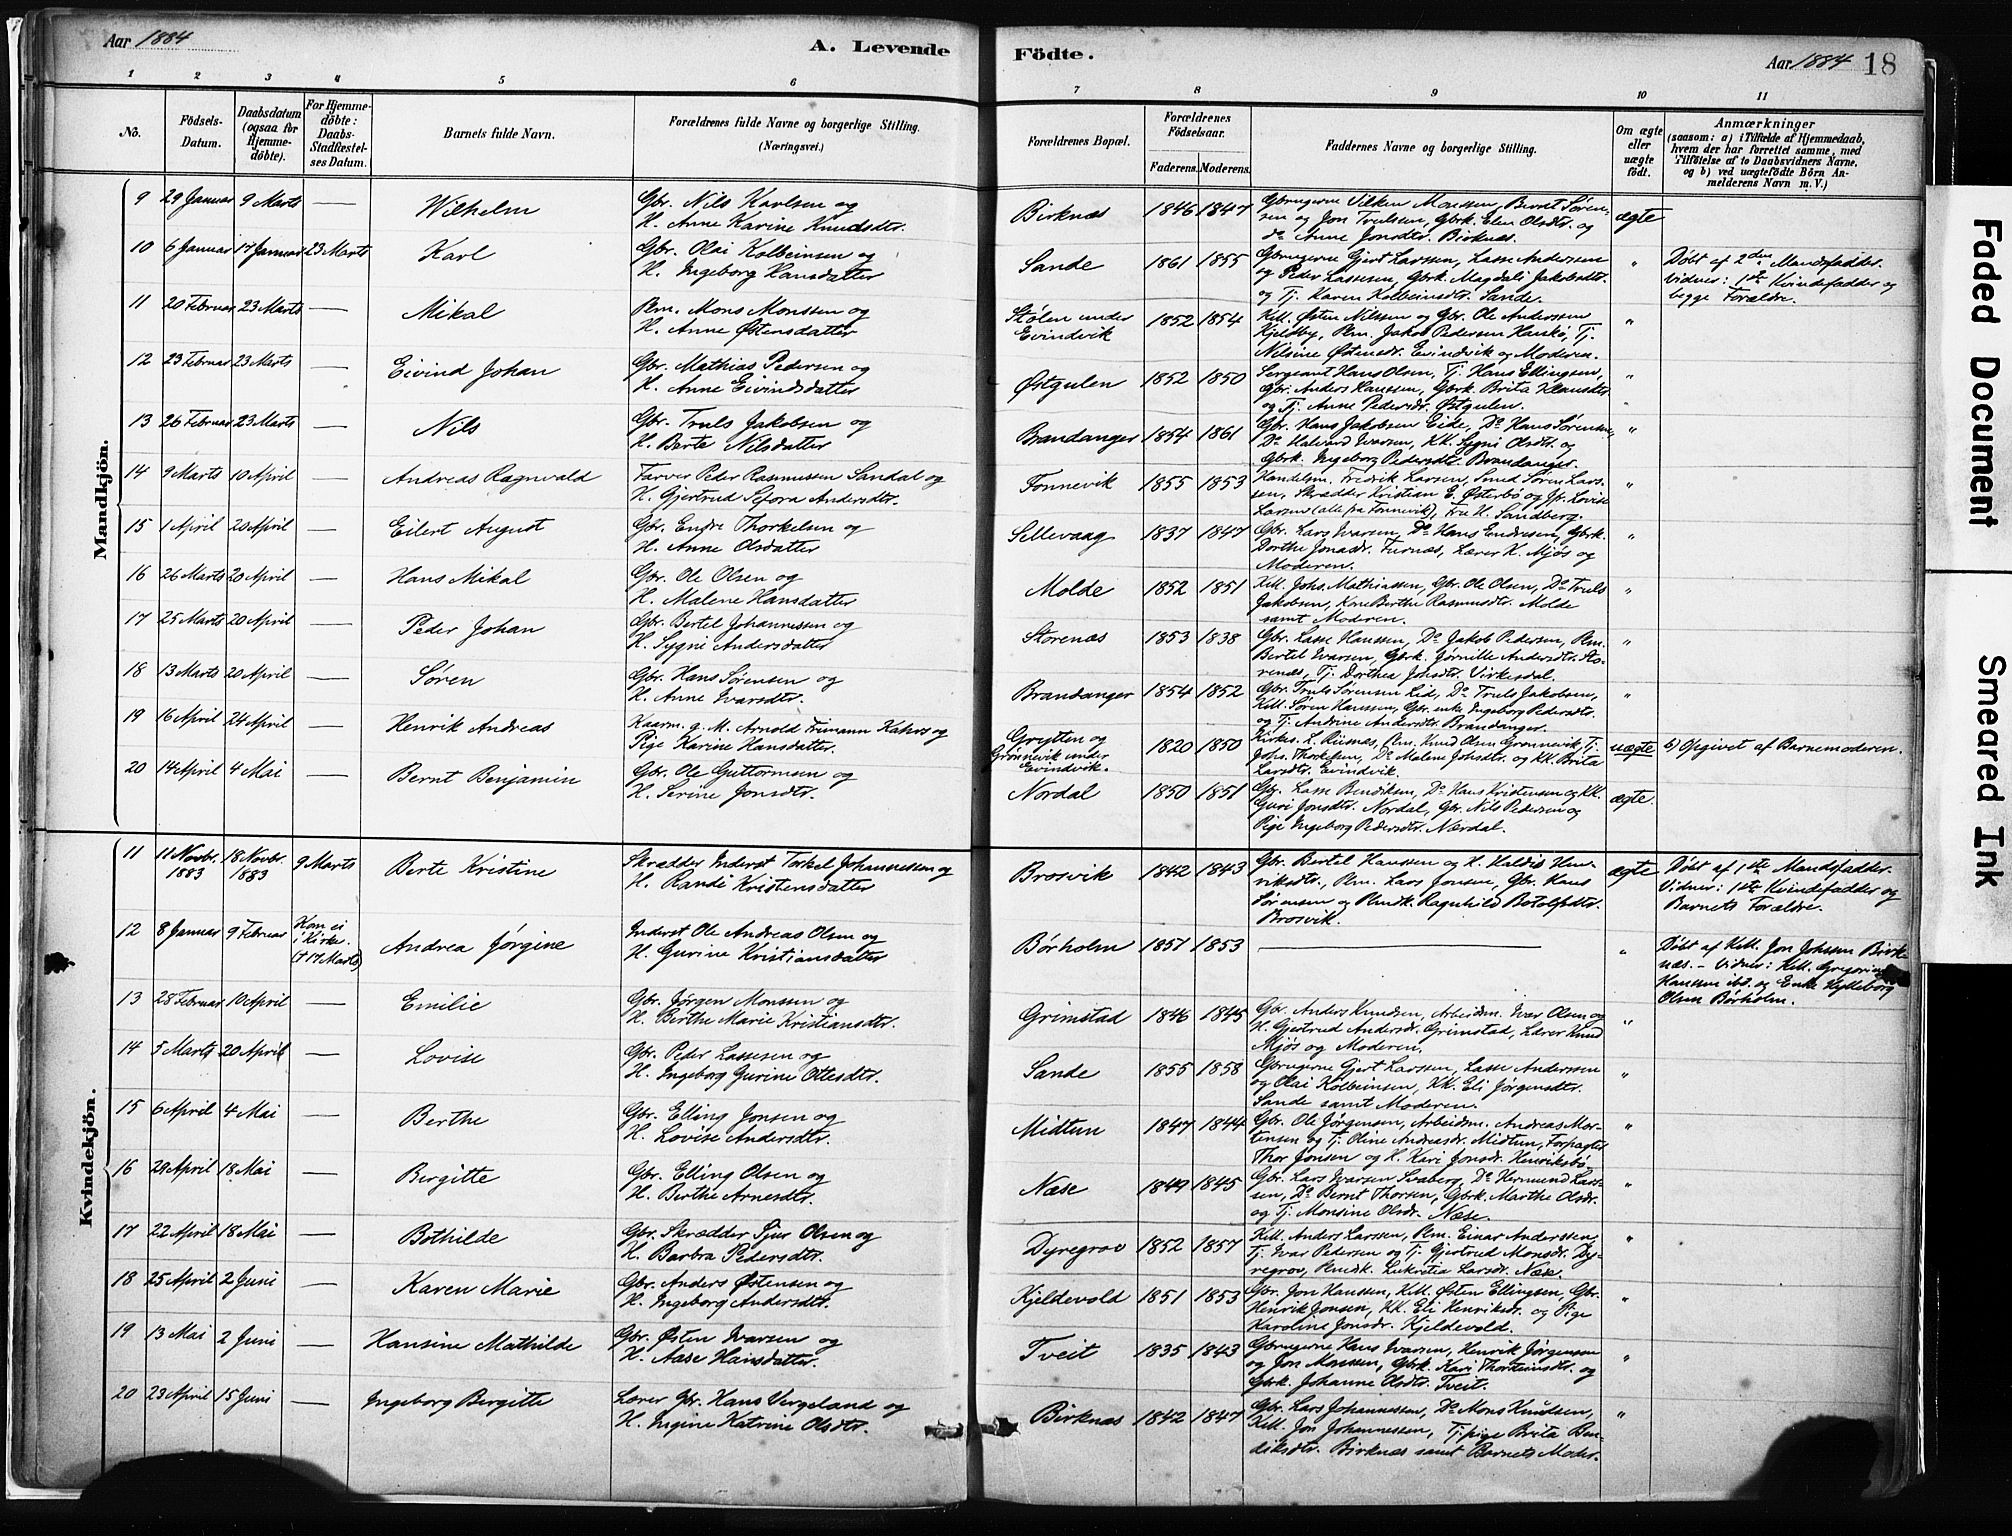 Aar 1884
A. Levende
Födte.
Aar 1884 18
1 2 3 4 5 6 7 8 9 10 11
No.
Födsels-Datum.
Daabsdatum (ogsaa for Hjemme-döbte).
For Hjemme-döbte: Daabs-Stadfæstel-ses Datum.
Barnets fulde Navn.
Forældrenes fulde Navne og borgerlige Stilling. (Næringsvei.)
Forældrenes Bopæl.
Forældrenes Födselsaar.
Faderens. Moderens.
Faddernes Navne og borgerlige Stilling.
Om ægte eller uægte födt.
Anmærkninger
(saasom: a) i Tilfælde af Hjemmedaab,
hvem der har forrettet samme, med
Tilföielse af to Daabsvidners Navne,
og b) ved uægtefödte Börn An-
melderens Navn m. V.)
Mandkjön.
9 29 Januar 9 Marts — Wilhelm
Gbr. Nils Karlsen og
H. Anne Karine Knudsdtr
Birknæs 1846 1847
Gbrugerne Vilken Monssen, Bernt Søren-
sen og Jon Trulssen, Gbrk. Elen Olsdtr. og
do Anne Jonsdtr. Birknæs.
ægte
10 6 Januar 17 Januar 23 Marts Karl
Gbr. Olai Kolbeinsen og
H. Ingeborg Hansdatter
Sande 1861 1855
Gbrugerne Gjert Larssen, Lasse Andersen
og Peder Lassesen, Gbrk. Magdali Jakobsdtr.
og Tj. Karen Kolbeinsdtr. Sande.
"
Døbt af 2den Mandsfadder.
Vidner: 1ste Kvindefadder og
begge Forældre.
11 20 Februar 23 Marts — Mikal
Plm. Mons Monssen og
H. Anne Østensdatter
Stølen under
Evindvik
1852 1854
Kell. Østen Nilssen og Gbr. Ole Anderssen
Kjeldby, Plm. Jakob Pedersen Henskø, Tj.
Nilsine Østensdr. Evindvik og Moderen.
"
12 23 Februar 23 Marts — Eivind Johan
Gbr. Mathias Pedersen og
H. Anne Eivindsdatter
Østgulen 1852 1850
Sergeant Hans Olsen, Tj. Hans Ellingsen,
Gbr. Anders Hanssen, Gbrk. Brita Klausdtr
og Tj. Anne Pedersdr. Østgulen.
"
13 26 Februar 23 Marts — Nils
Gbr. Truls Jakobsen og
H. Berte Nilsdatter
Brandanger 1854 1861
Gbr. Hans Jakobsen Eide, Do Hans Sørensen,
Do Halvard Ivarsen, KK. Sygni Olsdtr. og
Gbrk. Ingeborg Pedersdtr. Brandanger.
"
14 9 Marts 10 April — Andreas Ragnvald
Farver Peter Rasmussen Sandal og
H. Gjertrud Sefora Andersdtr.
Fonnevik 1855 1853
Handelsm. Fredrik Larsen, Smed Søren Lars-
sen, Skrædder Kristian E. Østerbø og Jfr. Lovise
Larsen (alle fra Fonnevik), Fru H. Sandberg.
"
15 1 April 20 April — Eilert August
Gbr. Endre Thorkelsen og
H. Anne Olsdatter
Sellevaag 1837 1847
Gbr. Lars Ivarsen, Do Hans Endresen, Gbrk.
Dorthe Jonasdr. Furnæs, Lærer K. Mjøs og
Moderen.
"
16 26 Marts 20 April — Hans Mikal
Gbr. Ole Olsen og
H. Malene Hansdatter
Molde 1852 1851
Kell. Johs. Mathiassen, Gbr. Ole Olsen, Do Truls
Jakobsen, Kone Berthe Rasmusdtr. Molde
samt Moderen.
"
17 25 Marts 20 April — Peder Johan
Gbr. Bertel Johannessen og
H. Sygni Andersdatter
Storenæs 1853 1838
Gbr. Lasse Hanssen, Do Jakob Pedersen, Plm.
Bertel Ivarsen, Gbrk. Jørnille Andersdtr. Sto-
renæs, Tj. Dorthea Johsdtr. Virkesdal.
"
18 13 Marts 20 April — Søren
Gbr. Hans Sørensen og
H. Anne Ivarsdtr.
Brandanger 1854 1852
Gbr. Truls Sørensen Lid, Do Truls Jakobsen,
Kell. Søren Hanssen, Gbr. enke Ingeborg Pedersdtr.
og Tj. Andrine Andersdtr. Brandanger.
"
19 16 April 24 April — Henrik Andreas
Kaarm. g. M. Arnold Frimann Kahrs og
Pige Karine Hansdatter.
Grytten og
Grønnevik under
Evindvik.
1820 1850
Kirkes. L. Riisnæs, Plm. Knud Olsen Grønnevik, Tj.
Johs. Thorkelsen, Do Malene Johsdtr. og KK. Brita
Larsdtr. Evindvik.
uægte
b) Opgivet af Barnemoderen.
20 14 April 4 Mai — Bernt Benjamin
Gbr. Ole Guttormsen og
H. Serine Jonsdtr.
Nordal 1850 1851
Gbr. Lasse Bendiksen, Do Hans Kristensen og KK.
Guri Jonsdtr. Nordal, Gbr. Nils Pedersen og
Pige Ingeborg Pedersdtr. Nærdal.
ægte.
Kvindekjön.
11 11 Novbr. 1883 18 Novbr. 1883 9 Marts Berte Kristine
Skrædder Inderst Torkel Johannessen og
H. Randi Kristensdatter
Brosvik 1842 1843
Gbr. Bertel Hanssen og H. Haldis Hen-
riksdtr., Plm. Lars Jonsen, Gbr. Hans
Sørensen og Plmdk. Ragnhild Botolfsdtr.
Brosvik.
ægte
Døbt af 1ste Mandsfadder.
Vidner: 1ste Kvindefadder og
Barnets Forældre.
12 8 Januar 9 Februar Kom ei i Kirke. († 17 Marts) Andrea Jørgine
Inderst Ole Andreas Olsen og
H. Gurine Kristiansdatter
Børholm 1857 1853 —
"
Døbt af Kell. Jon Johssen Birk-
næs. – Vidner: Kell. Gregorius
Hanssen ibd. og Enke Hylleborg
Olsen Børholm.
13 28 Februar 10 April — Emilie
Gbr. Jørgen Monssen og
H. Berthe Marie Kristiansdtr.
Grimstad 1846 1845
Gbr. Anders Knudsen, Arbeidsm. Ivar Olsen og
H. Gjertrud Andersdr. Grimstad, Lærer Knud
Mjøs og Moderen.
"
14 5 Marts 20 April — Lovise
Gbr. Peder Lassesen og
H. Ingeborg Gurine Ottesdtr.
Sande 1855 1858
Gbrugerne Gjert Larssen, Lasse Anderssen
og Olai Kolbeinsen, KK. Eli Jørgensdtr.
Sande samt Moderen.
"
15 6 April 4 Mai — Berthe
Gbr. Elling Jonsen og
H. Lovise Andersdtr.
Midtun 1847 1844
Gbr. Ole Jørgensen, Arbeidsm. Andreas Mor-
tensen og Tj. Oline Andreasdr. Midtun, Forpagter
Thor Jonsen og H. Kari Jonsdr. Henriksbø.
"
16 29 April 18 Mai — Bergitte
Gbr. Elling Olsen og
H. Berthe Arnesdtr.
Næse 1849 1845
Gbr. Lars Ivarsen Svaberg, Do Hermund Lars-
sen, Do Bernt Thorsen, Gbrk. Marthe Olsdr.
og Tj. Monsine Olsdr. Næse.
"
17 22 April 18 Mai — Bothilde
Gbr. Skrædder Sjur Olsen og
H. Barbra Pedersdtr.
Dyregrov 1852 1857
Kell. Anders Larssen, Plm. Einar Anderssen,
Tj. Ivar Pedersen og Tj. Gjertrud Monsdr. Dy-
regrov, Plmdk. Lukretia Larsdr. Næse.
"
18 25 April 2 Juni — Karen Marie
Gbr. Anders Østensen og
H. Ingeborg Andersdtr.
Kjeldevold 1851 1853
Gbr. Jon Hanssen, Kell. Østen Ellingsen, Gbr.
Henrik Jonsen, KK. Eli Henriksdr. og Pige
Karoline Jonsdr. Kjeldevold.
"
19 13 Mai 2 Juni — Hansine Mathilde
Gbr. Østen Ivarsen og
H. Aase Hansdatter.
Tveit 1835 1843
Gbrugerne Hans Ivarsen, Henrik Jørgensen
og Jon Monssen, Gbrk. Kari Thorsteinsdtr. og
Gbrk. Johanne Olsdtr. Tveit.
"
20 23 April 15 Juni — Ingeborg Bergitte
Lærer Gbr. Hans Vergeland og
H. Ingine Katrine Olsdtr.
Birknæs 1842 1847
Gbr. Lars Johannessen, Do Mons Knudsen,
Kell. Jon Johannessen, Tj. pige Brita Ben-
diksdtr. Birknæs samt Barnets Moder.
"
Faded Document
Smeared Ink